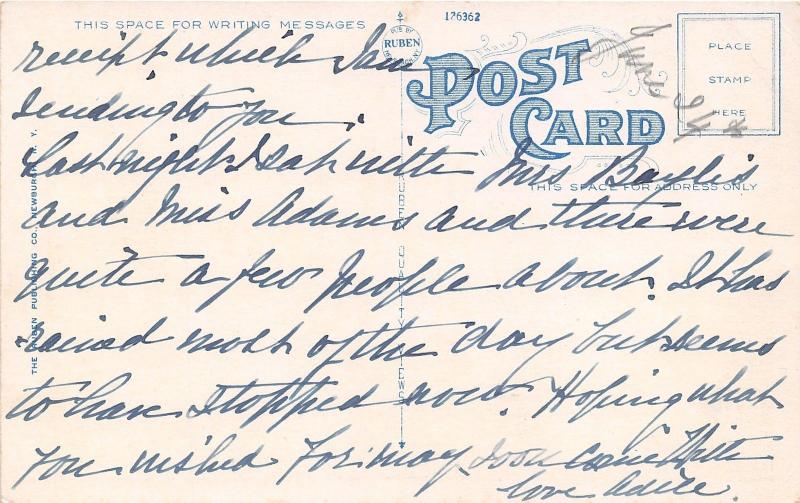 THIS SPACE FOR WRITING MESSAGES
126362
PUB BY
RUBEN
POST
CARD
PLACE
STAMP
HERE
THIS SPACE FOR ADDRESS ONLY
THE RUBEN PUBLISHING CO., NEWBURGH, N. Y.
RUBEN QUALITY VIEWS
receipt which I am
sending to you.
Last night I sat with Mrs Baylis
and Miss Adams and there were
quite a few people about. It has
rained most of the day but seems
to have stopped now. Hoping what
you wished for may soon come
love